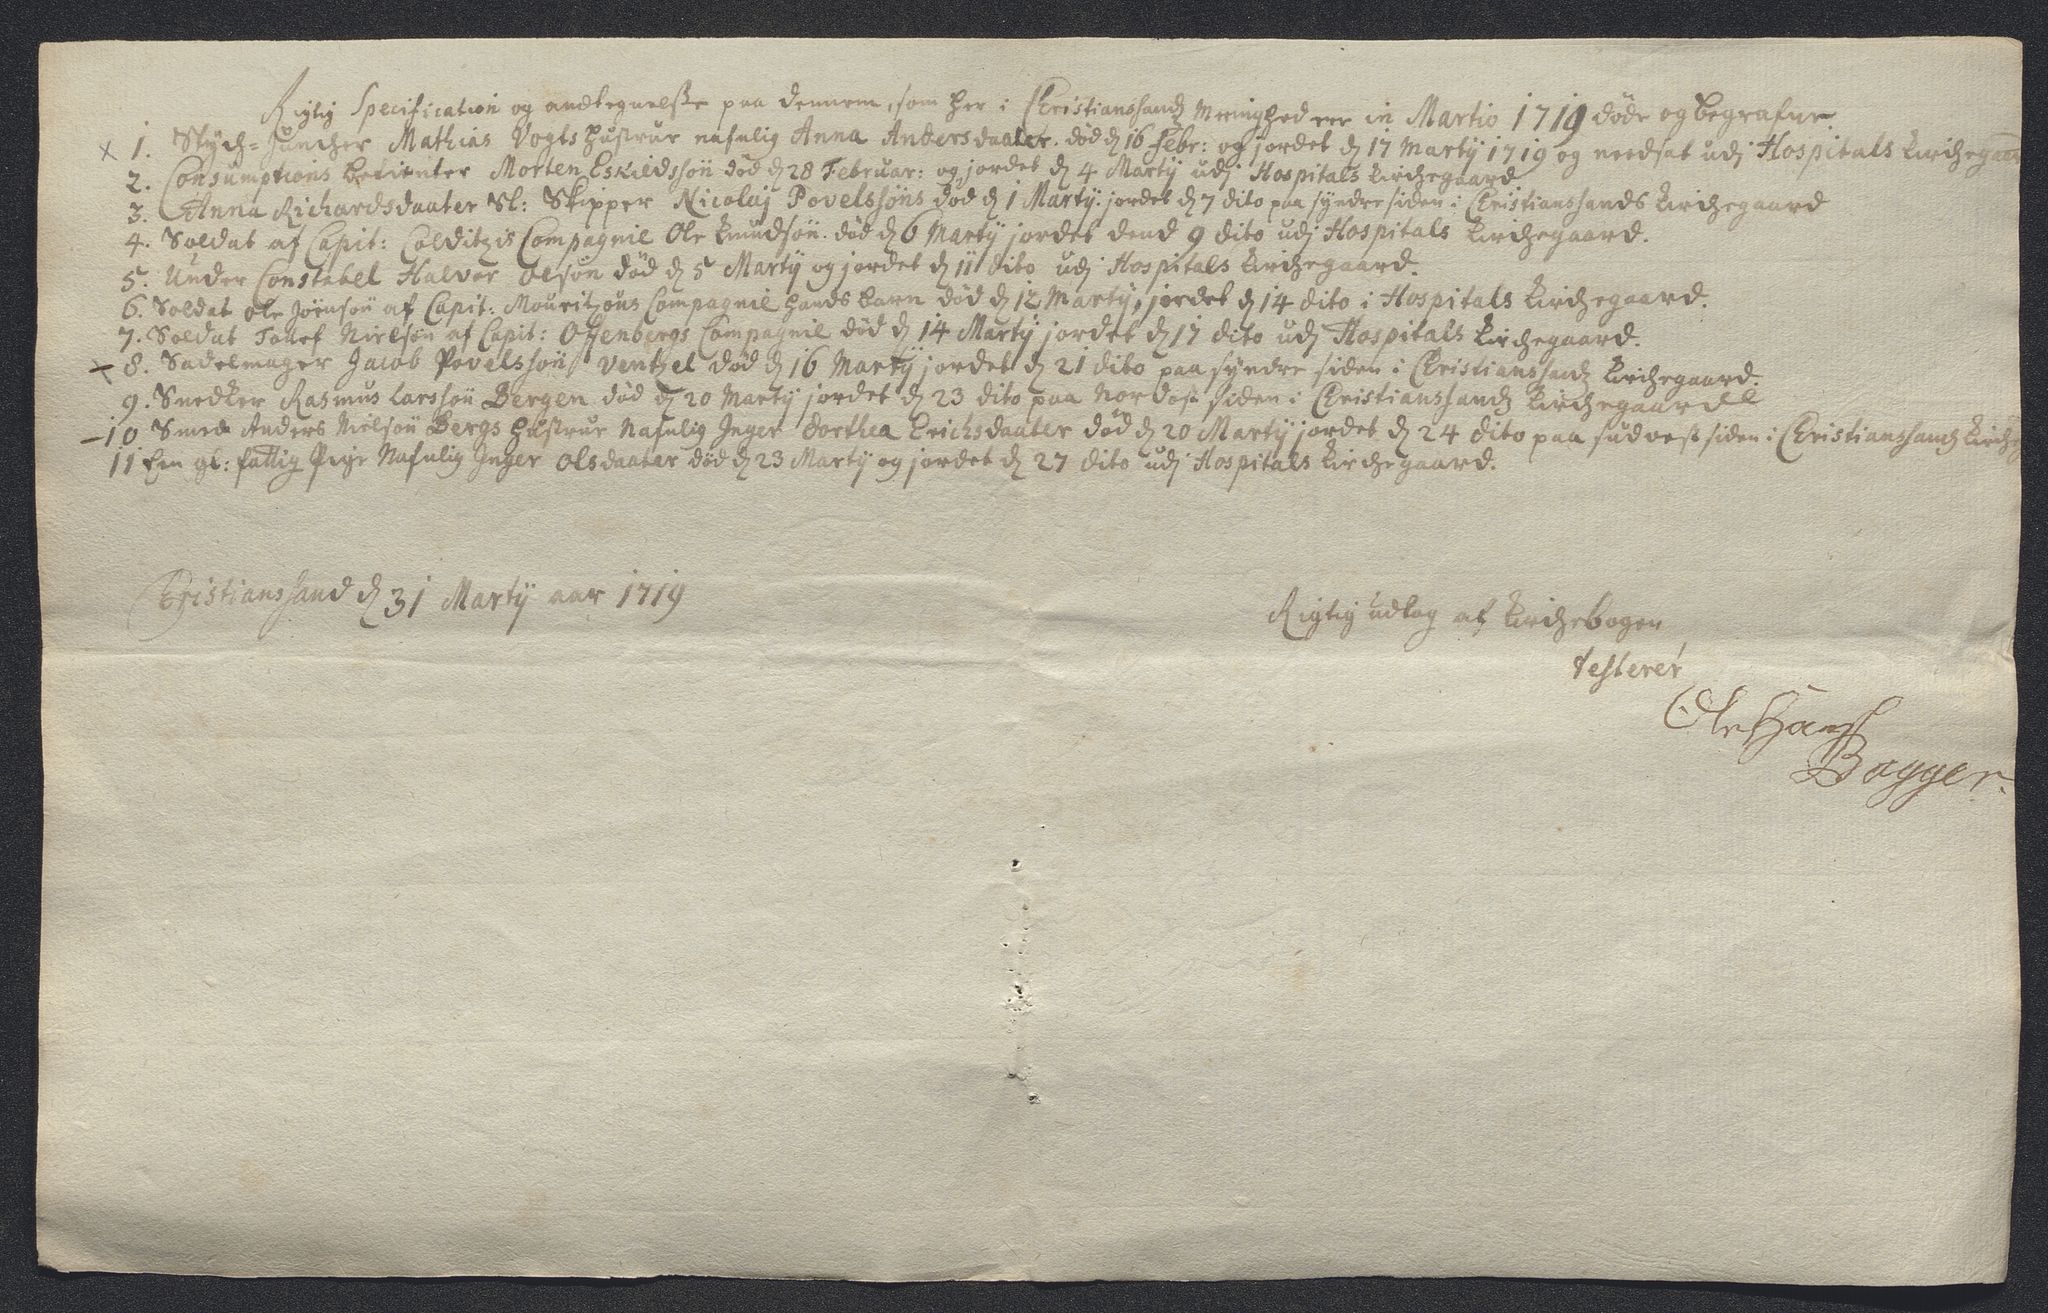 Rigtig Specification og andtegnelsse paa dennem, som her i Christianssands Meenighed ere in Martio 1719 døde og begrafne.
x 1. Stych-Juncher Mathias Vogts hustrue nafnlig Anna Andersdaater. død d 16 Febr: og jordet d 17 Martÿ 1719 og needsat udj Hospitals kirchegaard
2. Consumptions betienter Morten Eskildssøn død d 28 Februar: og jordet d 4 Martÿ udj Hospitals kirchegaard
3. Anna Richardsdaater Sl: Skipper Nicolaj Povelssøns død d 1 Martÿ. jordet d 7 dito paa syndre siden i Christianssands kirchegaard
4. Soldat af Capit: Colditzis Compagnie Ole Knudsøn. død d 6 Martÿ jordet dend 9 dito udj Hospitals kirchegaard.
5. Under Constabel Halvor Olsøn død d 5 Martÿ og jordet d 11 dito udj Hospitals kirchegaard.
6. Soldat Ole Jørnsøn af Capit: Mouritzøns Compagnie hands barn død d 12 Martÿ, jordet d 14 dito i Hospitals kirchegaard.
7. Soldat Tollef Nielsøn af Capit: Offenbergs Compagnie død d 14 Martÿ jordet d 17 dito udj Hospitals kirchegaard.
8. Sadelmager Jacob Povelssøn Ventzel død d 16 Martÿ jordet d 21 dito paa syndre siden i Christianssands kirchegaard.
9. Snedker Rasmus Larssøn Bergen død d 20 Martÿ jordet d 23 dito paa Nordost siden i Christianssands kirchegaard
10 Smed Anders Nielsøn Bergs hustrue Nafnlig Inger Dorthea Erichsdaater død d 20 Martÿ jordet d 24 dito paa sudvest siden i Christianssands kircheg
11 Een gl: fattig Pige Nafnlig Inger Olsdaater død d 23 Martÿ og jordet d 27 dito udj Hospitals kirchegaard.
Christianssand d 31 Martÿ aar 1719
Rigtig udtog af kirchebogen
testerer
Ole Hanss
Bagger.